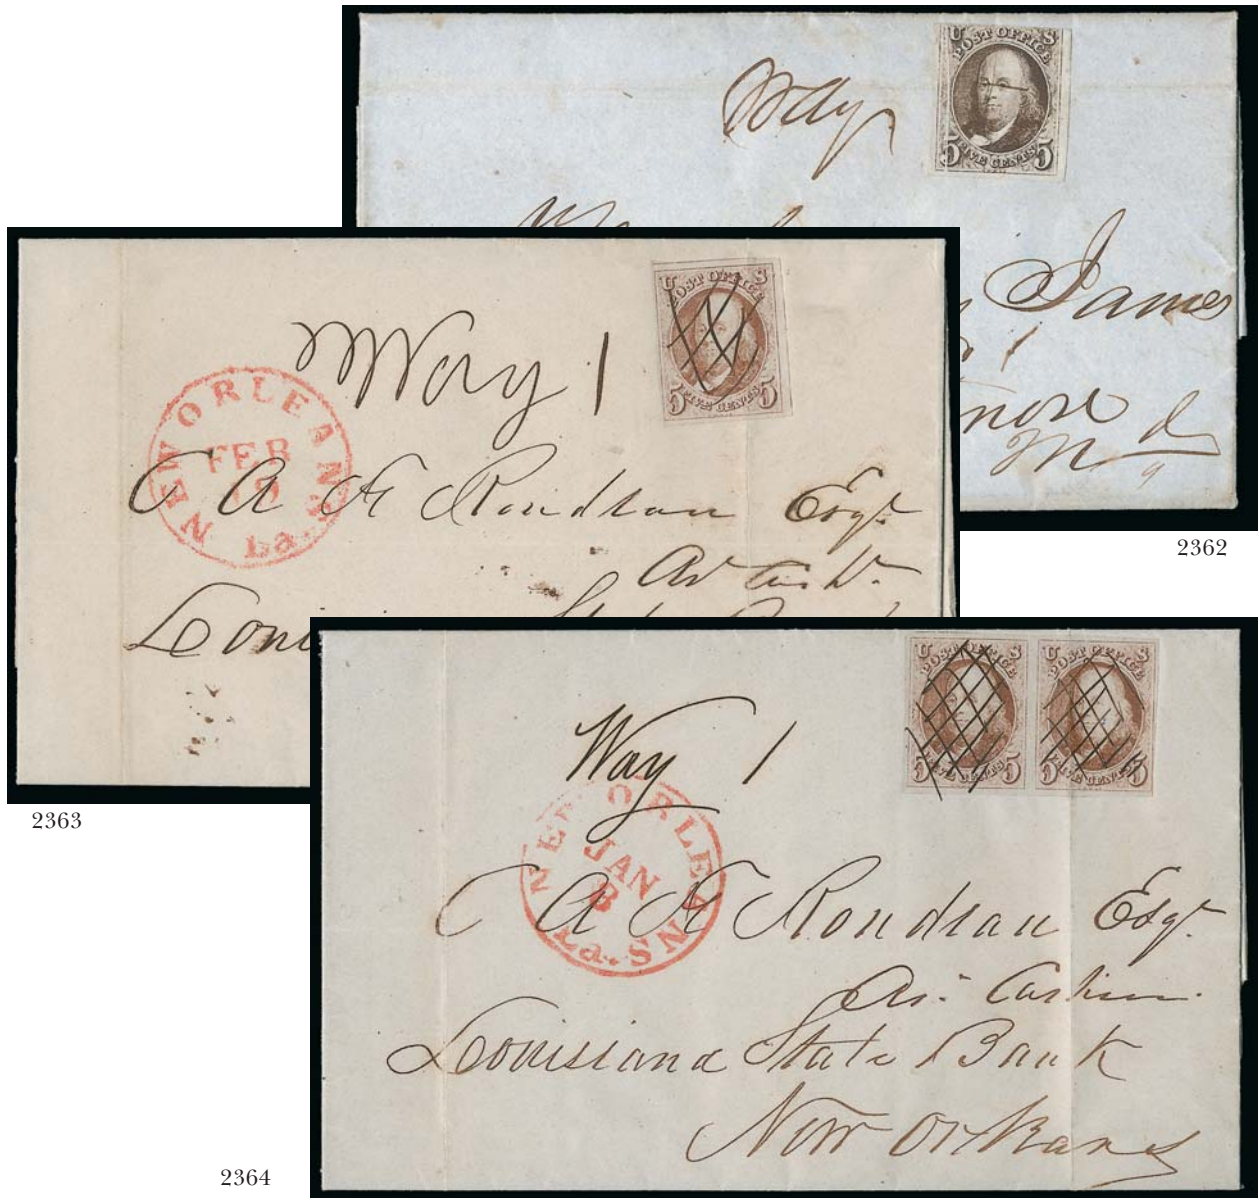 Way
U S
POST OFFICE
5 FIVE CENTS 5
James
more
Md
2362
Way 1
U S
POST OFFICE
5 FIVE CENTS 5
NEW ORLEANS
FEB
La.
C A K Rondeau Esqr
2363
U S
POST OFFICE
5 FIVE CENTS 5
U S
POST OFFICE
5 FIVE CENTS 5
Way 1
NEW ORLEANS
JAN
8
La.
C A K Rondeau Esqr
As. Cashier
Louisiana State Bank
New Orleans
2364